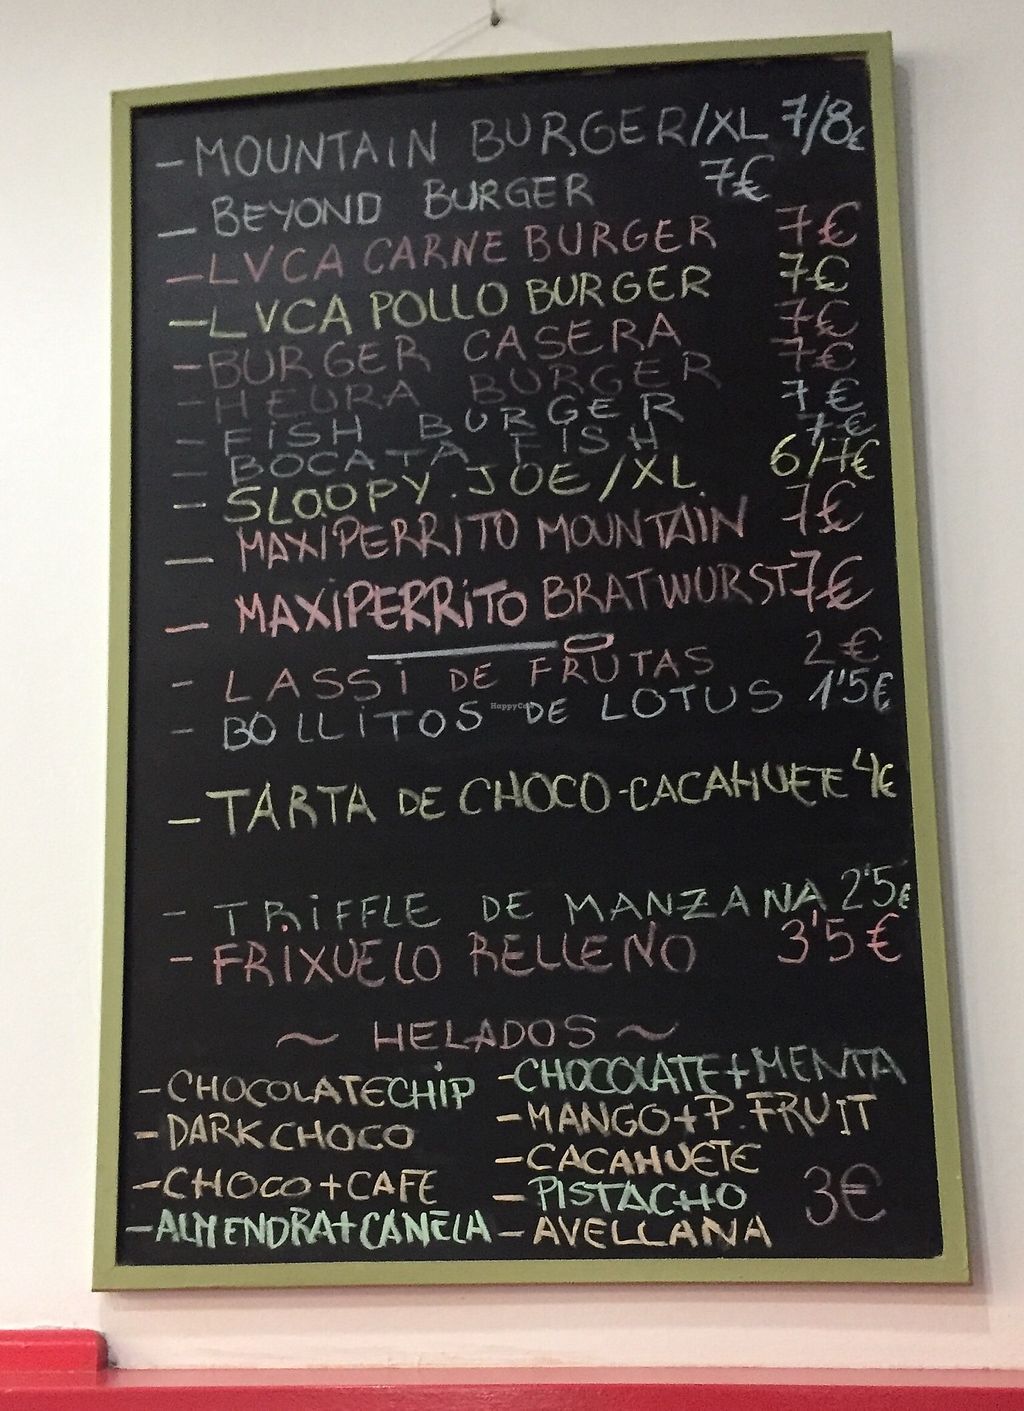 - MOUNTAIN BURGER/XL 7/8€
- BEYOND BURGER 7€
- LVCA CARNE BURGER 7€
- LVCA POLLO BURGER 7€
- BURGER CASERA 7€
- HEURA BURGER 7€
- FISH BURGER 7€
- BOCATA FISH 7€
- SLOOPY JOE/XL 6/7€
- MAXIPERRITO MOUNTAIN 7€
- MAXIPERRITO BRATWURST 7€
- LASSI DE FRUTAS 2€
- BOLLITOS DE LOTUS 1'5€
HappyCow
- TARTA DE CHOCO-CACAHUETE 4€
- TRIFFLE DE MANZANA 2'5€
- FRIXUELO RELLENO 3'5€
~ HELADOS ~
- CHOCOLATE CHIP
- DARK CHOCO
- CHOCO + CAFE
- ALMENDRA + CANELA
- CHOCOLATE + MENTA
- MANGO + P. FRUIT
- CACAHUETE
- PISTACHO
- AVELLANA
3€